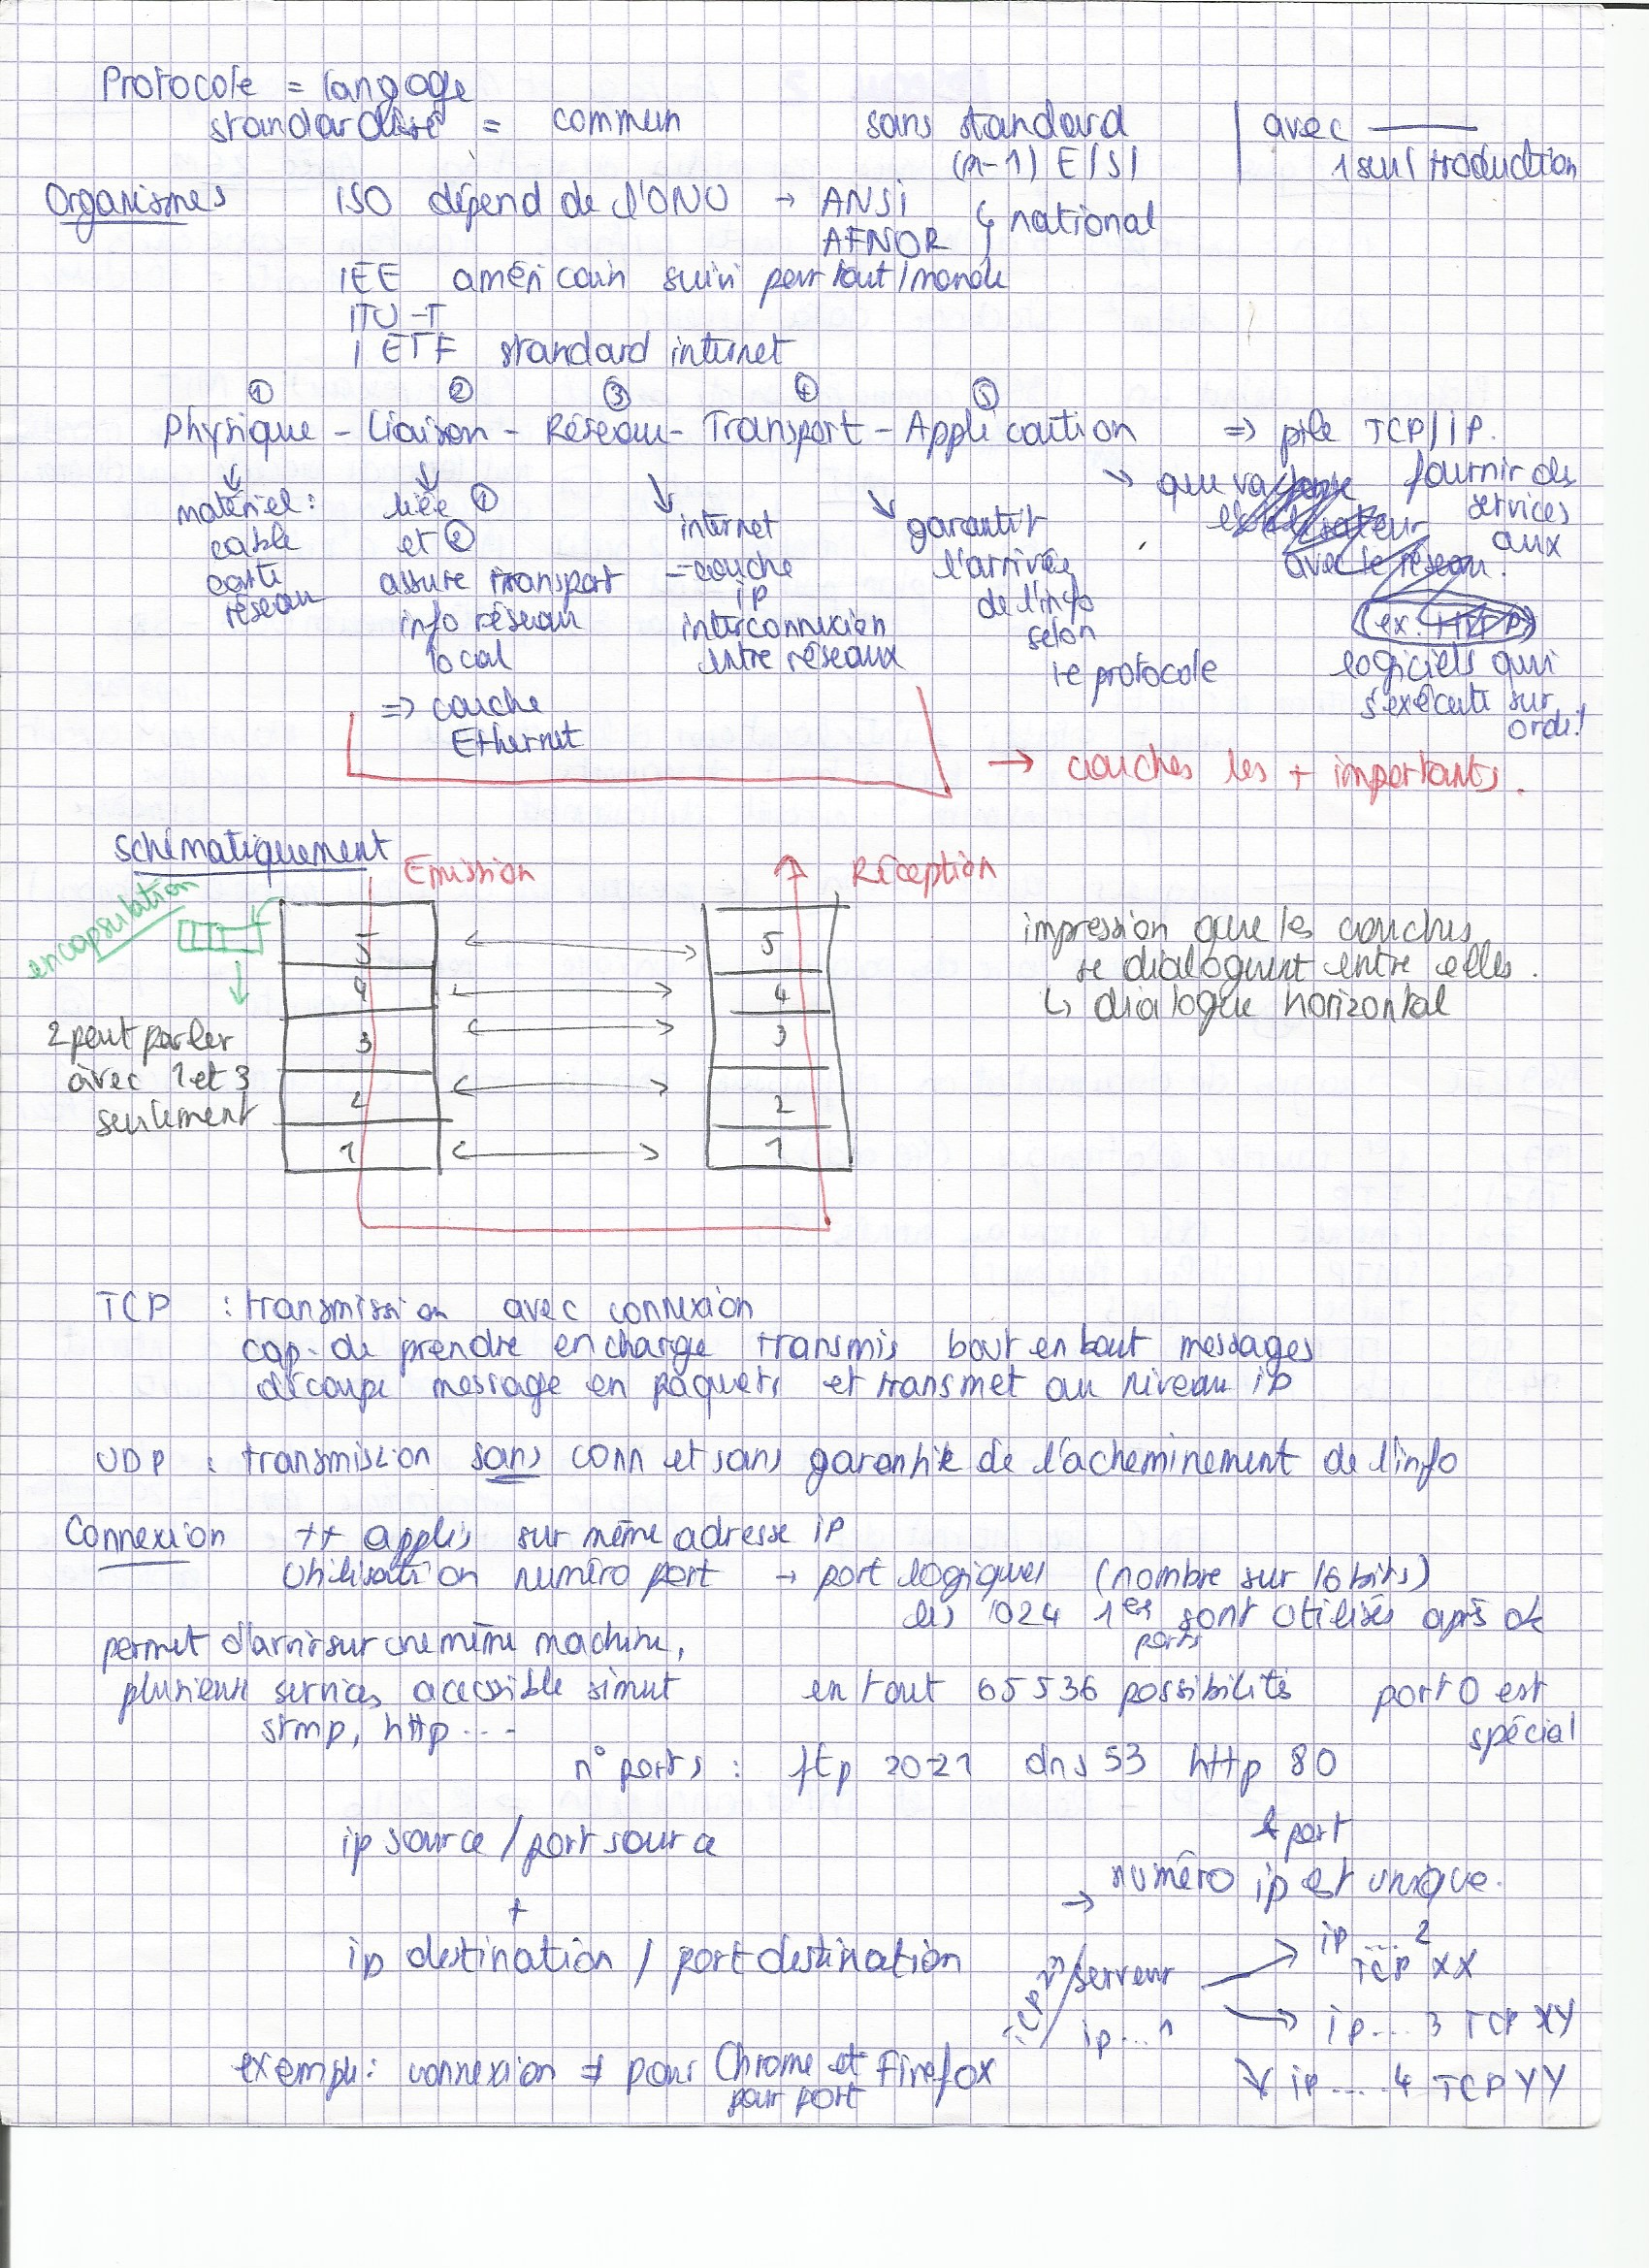 Protocole = langage
standardisé = commun sans standard | avec ———
(n-1) E/S | 1 seul traduction
Organismes ISO dépend de l'ONU → ANSI
AFNOR ↳ national
IEE américain suivi par tout/monde
ITU-T
IETF standard internet
① ② ③ ④ ⑤
Physique - Liaison - Réseau - Transport - Application ⇒ pile TCP/IP.
matériel:
cable
carte
réseau
liée ①
et ②
assure transport
info réseau
local
⇒ couche
Ethernet
internet
= couche
IP
interconnexion
entre réseaux
garantit
l'arrivée
de l'info
selon
le protocole
fournir des
services
aux
logiciels qui
s'exécute sur
ordi!
→ couches les + importants.
schématiquement
Emission Réception
encapsulation
5 5
4 4
3 3
2 2
1 1
impression que les couches
se dialoguent entre elles.
↳ dialogue horizontal
2 peut parler
avec 1 et 3
seulement
TCP : transmission avec connexion
cap. de prendre en charge transmis bout en bout messages
découpe message en paquets et transmet au niveau ip
UDP : transmission sans conn et sans garantie de l'acheminement de l'info
Connexion ++ applis sur même adresse ip
Utilisation numéro port → port logiques (nombre sur 16 bits)
les 1024 1ers ports sont utilisés après ok
permet d'avoir sur une même machine,
plusieurs services accessible simut
stmp, http ...
en tout 65536 possibilités port 0 est
spécial
n° ports : ftp 20-21 dns 53 http 80
ip source / port source
+
ip destination / port destination
& port
→ numéro ip est unique.
serveur
ip...1
ip....2
TCP XX
ip....3 TCP XY
ip....4 TCP YY
exemple: connexion ≠ pour Chrome et Firefox
par port